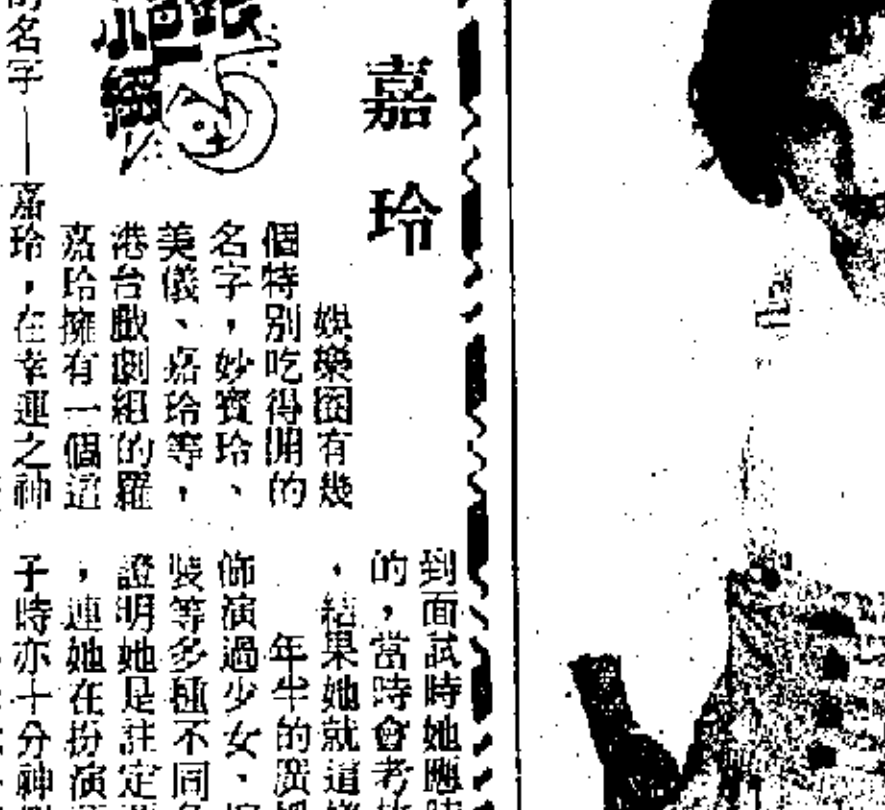 嘉玲
娛樂圈有幾
個特別吃得開的
名字，妙寶玲、
美儀、嘉玲等，
港台戲劇組的羅
嘉玲擁有一個這
名字——嘉玲，在幸運之神
到面試時她應
的，當時會考
，結果她就這
年半的廣
飾演過少女、
裝等多種不同
證明她是註定
，連她在扮演
子時亦十分神